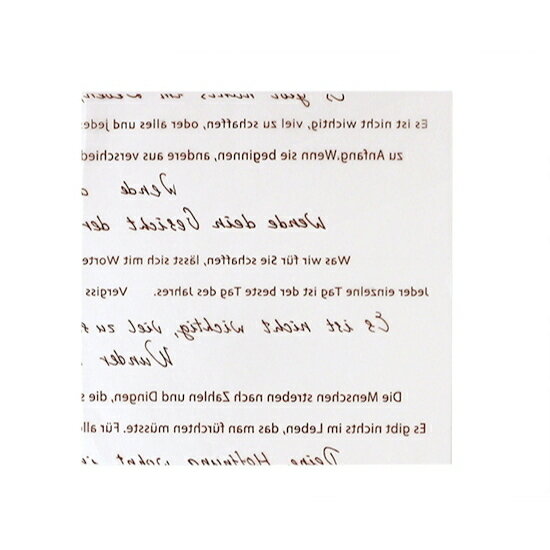 Es gibt nichts im Leben,
Es ist nicht wichtig, viel zu schaffen, oder alles und jedes
zu Anfang.Wenn sie beginnen, andere aus verschied
Wende
Wende dein Gesicht der
Was wir für Sie schaffen, lässt sich mit Worte
Jeder einzelne Tag ist der beste Tag des Jahres. Vergiss
Es ist nicht wichtig, viel zu
Wunder
Die Menschen streben nach Zahlen und Dingen, die s
Es gibt nichts im Leben, das man fürchten müsste. Für alle
Deine Hoffnung wohnt in